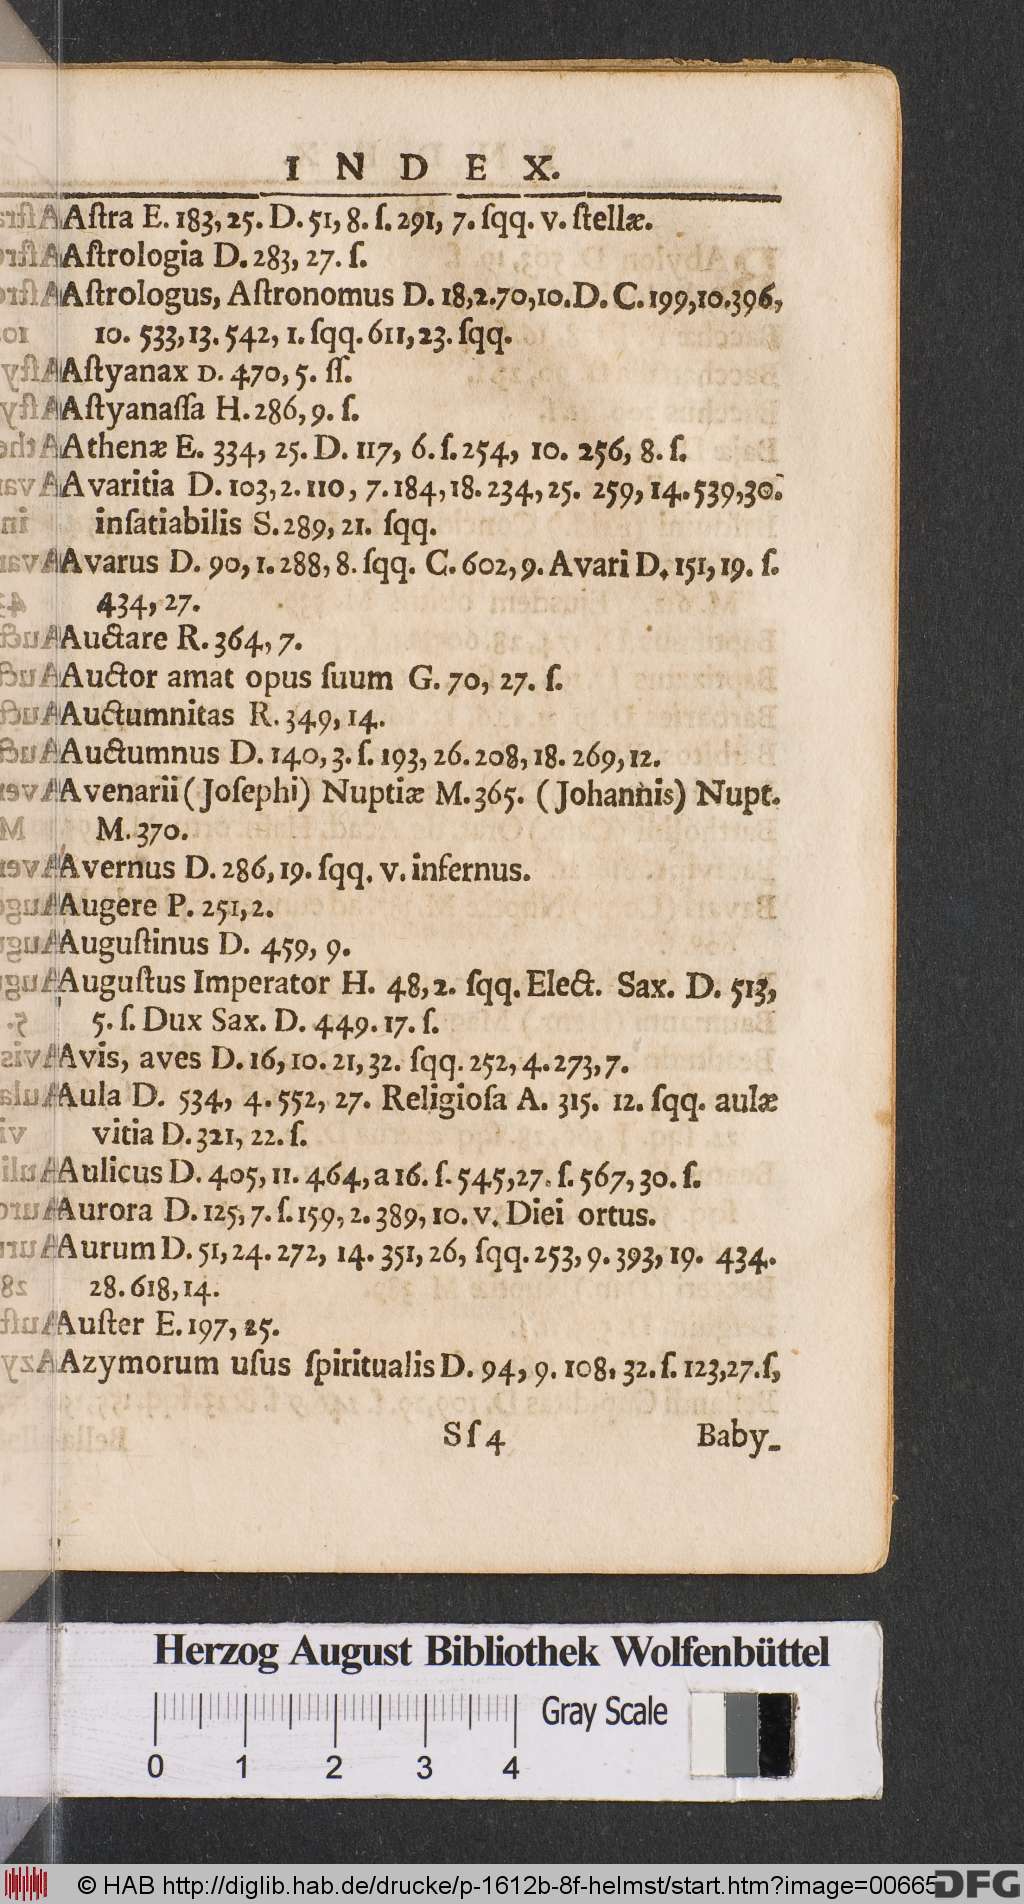 INDEX.
Aſtra E. 183, 25. D. 51, 8. ſ. 291, 7. ſqq. v. ſtellæ.
Aſtrologia D. 283, 27. ſ.
Aſtrologus, Aſtronomus D. 18,2.70,10.D. C. 199,10.396,
10. 533,13. 542, 1. ſqq. 611, 23. ſqq.
Aſtyanax D. 470, 5. ſſ.
Aſtyanaſſa H. 286, 9. ſ.
Athenæ E. 334, 25. D. 117, 6. ſ. 254, 10. 256, 8. ſ.
Avaritia D. 103, 2. 110, 7. 184, 18. 234, 25. 259, 14. 539,30.
inſatiabilis S. 289, 21. ſqq.
Avarus D. 90, 1. 288, 8. ſqq. C. 602, 9. Avari D. 151, 19. ſ.
434, 27.
Auctare R. 364, 7.
Auctor amat opus ſuum G. 70, 27. ſ.
Auctumnitas R. 349, 14.
Auctumnus D. 140, 3. ſ. 193, 26. 208, 18. 269, 12.
Avenarii (Joſephi) Nuptiæ M. 365. (Johannis) Nupt.
M. 370.
Avernus D. 286, 19. ſqq. v. infernus.
Augere P. 251, 2.
Auguſtinus D. 459, 9.
Auguſtus Imperator H. 48, 2. ſqq. Elect. Sax. D. 513,
5. ſ. Dux Sax. D. 449. 17. ſ.
Avis, aves D. 16, 10. 21, 32. ſqq. 252, 4. 273, 7.
Aula D. 534, 4. 552, 27. Religioſa A. 315. 12. ſqq. aulæ
vitia D. 321, 22. ſ.
Aulicus D. 405, 11. 464, a 16. ſ. 545, 27. ſ. 567, 30. ſ.
Aurora D. 125, 7. ſ. 159, 2. 389, 10. v. Diei ortus.
Aurum D. 51, 24. 272, 14. 351, 26, ſqq. 253, 9. 393, 19. 434.
28. 618, 14.
Auſter E. 197, 25.
Azymorum uſus ſpiritualis D. 94, 9. 108, 32. ſ. 123,27. ſ,
Sſ 4 Baby-
Herzog August Bibliothek Wolfenbüttel
Gray Scale
0 1 2 3 4
© HAB http://diglib.hab.de/drucke/p-1612b-8f-helmst/start.htm?image=00665
DFG